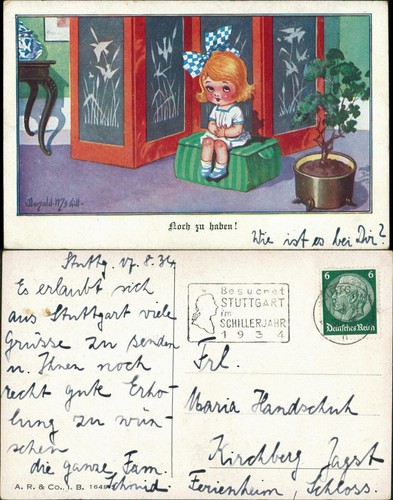 Noch zu haben!
Wie ist es bei Dir?
Stuttg. 17.8.34.
Es erlaubt sich
aus Stuttgart viele
Grüsse zu senden
u. Ihnen noch
recht gute Erho-
lung zu wün-
schen
die ganze Fam.
Schmid.
A. R. & Co., i. B.
Besuchet
STUTTGART
im
SCHILLERJAHR
1934
6 6
Deutsches Reich
Frl.
Maria Handschuh
Kirchberg Jagst
Ferienheim, Schloss.